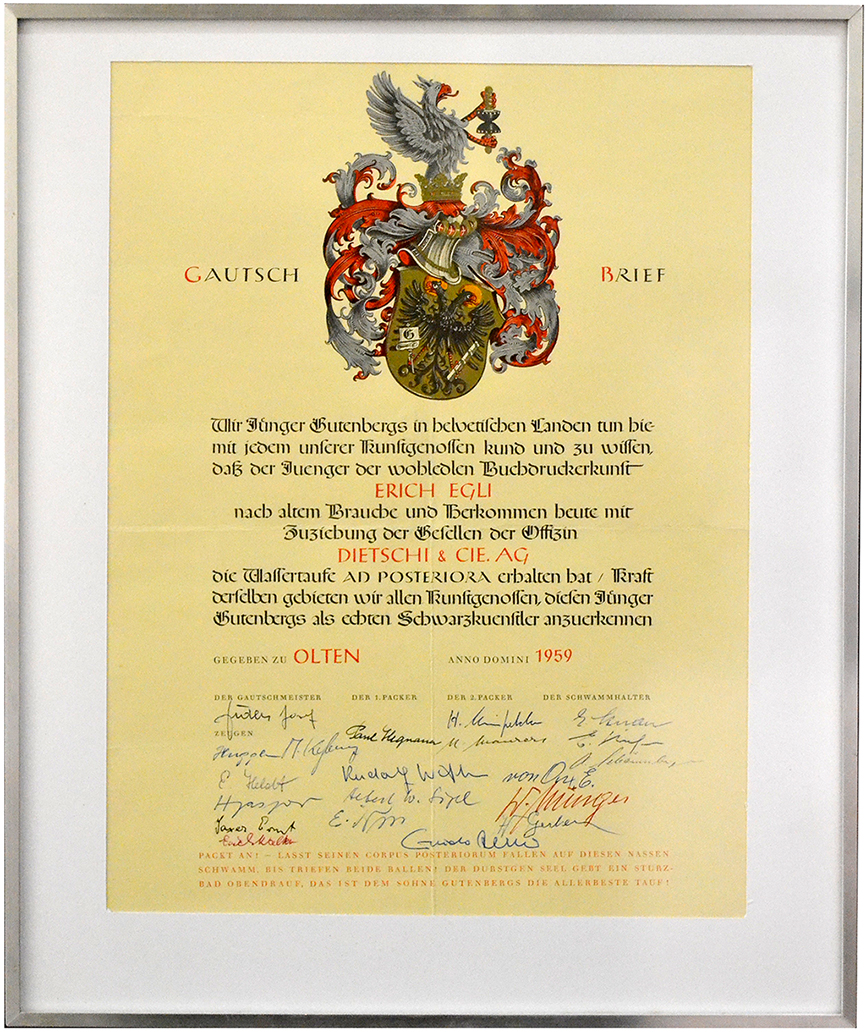 GAUTSCH BRIEF
G
Wir Jünger Gutenbergs in helvetischen Landen tun hie-
mit jedem unserer Kunstgenossen kund und zu wissen,
daß der Juenger der wohledlen Buchdruckerkunst
ERICH EGLI
nach altem Brauche und Herkommen heute mit
Zuziehung der Gesellen der Offizin
DIETSCHI & CIE. AG
die Wassertaufe AD POSTERIORA erhalten hat / Kraft
derselben gebieten wir allen Kunstgenossen, diesen Jünger
Gutenbergs als echten Schwarzkuenstler anzuerkennen
GEGEBEN ZU OLTEN ANNO DOMINI 1959
DER GAUTSCHMEISTER DER 1. PACKER DER 2. PACKER DER SCHWAMMHALTER
ZEUGEN
Paul Hegnauer
E. Heldt Rudolf von Arx E.
Albert W.
Saxer Ernst
Guido
PACKT AN! – LASST SEINEN CORPUS POSTERIORUM FALLEN AUF DIESEN NASSEN
SCHWAMM, BIS TRIEFEN BEIDE BALLEN! DER DURSTGEN SEEL GEBT EIN STURZ-
BAD OBENDRAUF, DAS IST DEM SOHNE GUTENBERGS DIE ALLERBESTE TAUF!